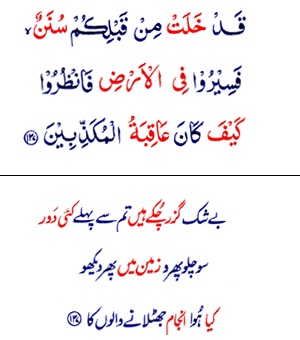 قَدْ خَلَتْ مِنْ قَبْلِكُمْ سُنَنٌ ۙ
فَسِيْرُوْا فِى الْاَرْضِ فَانْظُرُوْا
كَيْفَ كَانَ عَاقِبَةُ الْمُكَذِّبِيْنَ ﴿۱۳۷﴾
بے شک گزر چکے ہیں تم سے پہلے کئی دَور
سو چلو پھرو زمین میں پھر دیکھو
کیا ہُوا انجام جھٹلانے والوں کا ﴿۱۳۷﴾